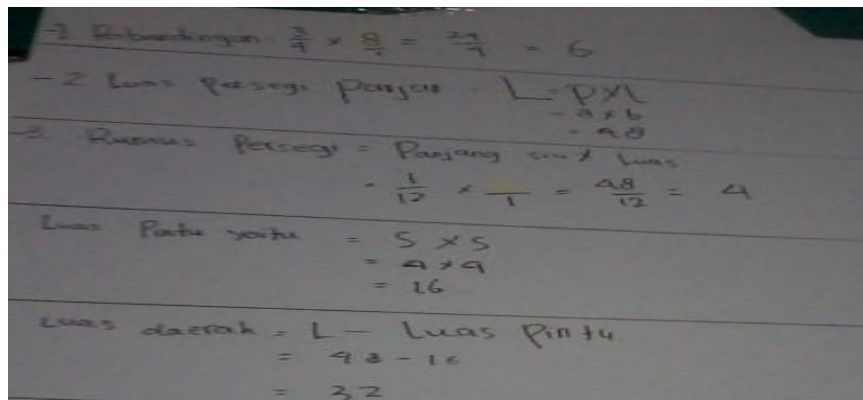 -1 Perbandingan 3/4 × 8/1 = 24/4 = 6
-2 Luas Persegi Panjang = L = P×L
= 8×6
= 48
-3 Rumus Persegi = Panjang sisi × Luas
= 1/12 × /1 = 48/12 = 4
Luas Pintu yaitu = S × S
= 4×4
= 16
Luas daerah = L - Luas Pintu
= 48 - 16
= 32